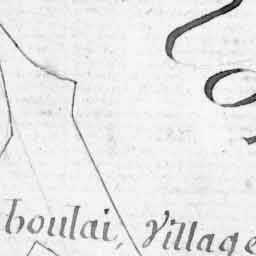 boulai, Village